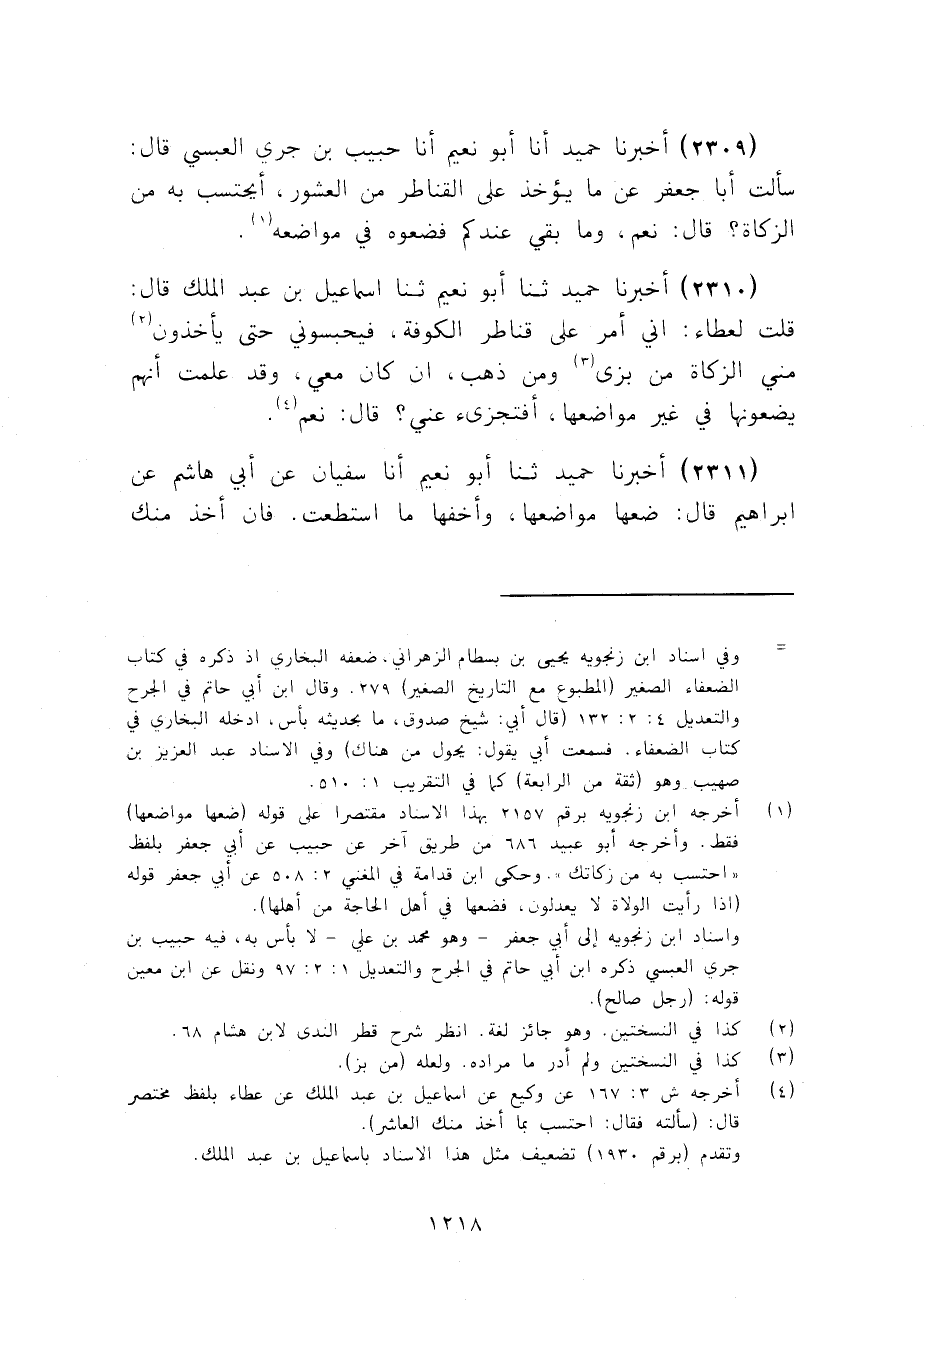 (٢٣٠٩) أخبرنا حميد أنا أبو نعيم أنا حبيب بن جري العبسي قال:
سألت أبا جعفر عن ما يؤخذ على القناطر من العشور، أيحتسب به من
الزكاة؟ قال: نعم، وما بقي عندكم فضعوه في مواضعه(١).
(٢٣١٠) أخبرنا حميد ثنا أبو نعيم ثنا اسماعيل بن عبد الملك قال:
قلت لعطاء: اني أمر على قناطر الكوفة، فيحبسوني حتى يأخذون(٢)
مني الزكاة من بزى(٣) ومن ذهب، ان كان معي، وقد علمت أنهم
يضعونها في غير مواضعها، أفتجزىء عني؟ قال: نعم(٤).
(٢٣١١) أخبرنا حميد ثنا أبو نعيم أنا سفيان عن أبي هاشم عن
ابراهيم قال: ضعها مواضعها، وأخفها ما استطعت. فان أخذ منك
= وفي اسناد ابن زنجويه يحيى بن بسطام الزهراني، ضعفه البخاري اذ ذكره في كتاب
الضعفاء الصغير (المطبوع مع التاريخ الصغير) ٢٧٩. وقال ابن أبي حاتم في الجرح
والتعديل ٤: ٢: ١٣٢ (قال أبي: شيخ صدوق، ما بحديثه بأس، ادخله البخاري في
كتاب الضعفاء. فسمعت أبي يقول: يحول من هناك) وفي الاسناد عبد العزيز بن
صهيب وهو (ثقة من الرابعة) كما في التقريب ١: ٥١٠.
(١) أخرجه ابن زنجويه برقم ٢١٥٧ بهذا الاسناد مقتصرا على قوله (ضعها مواضعها)
فقط. وأخرجه أبو عبيد ٦٨٦ من طريق آخر عن حبيب عن أبي جعفر بلفظ
«احتسب به من زكاتك». وحكى ابن قدامة في المغني ٢: ٥٠٨ عن أبي جعفر قوله
(اذا رأيت الولاة لا يعدلون، فضعها في أهل الحاجة من أهلها).
واسناد ابن زنجويه إلى أبي جعفر - وهو محمد بن علي - لا بأس به، فيه حبيب بن
جري العبسي ذكره ابن أبي حاتم في الجرح والتعديل ١: ٢: ٩٧ ونقل عن ابن معين
قوله: (رجل صالح).
(٢) كذا في النسختين. وهو جائز لغة. انظر شرح قطر الندى لابن هشام ٦٨.
(٣) كذا في النسختين ولم أدر ما مراده. ولعله (من بز).
(٤) أخرجه ش ٣: ١٦٧ عن وكيع عن اسماعيل بن عبد الملك عن عطاء بلفظ مختصر
قال: (سألته فقال: احتسب بما أخذ منك العاشر).
وتقدم (برقم ١٩٣٠) تضعيف مثل هذا الاسناد باسماعيل بن عبد الملك.
١٢١٨